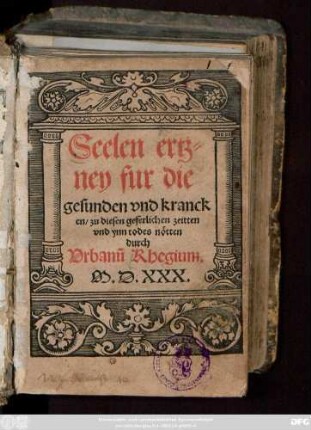 Seelen ertz-
ney fur die
gesunden vnd kranck
en/ zu diesen geferlichen zeitten
vnd ynn todes nötten
durch
Vrbanū Rhegium.
M. D. XXX.